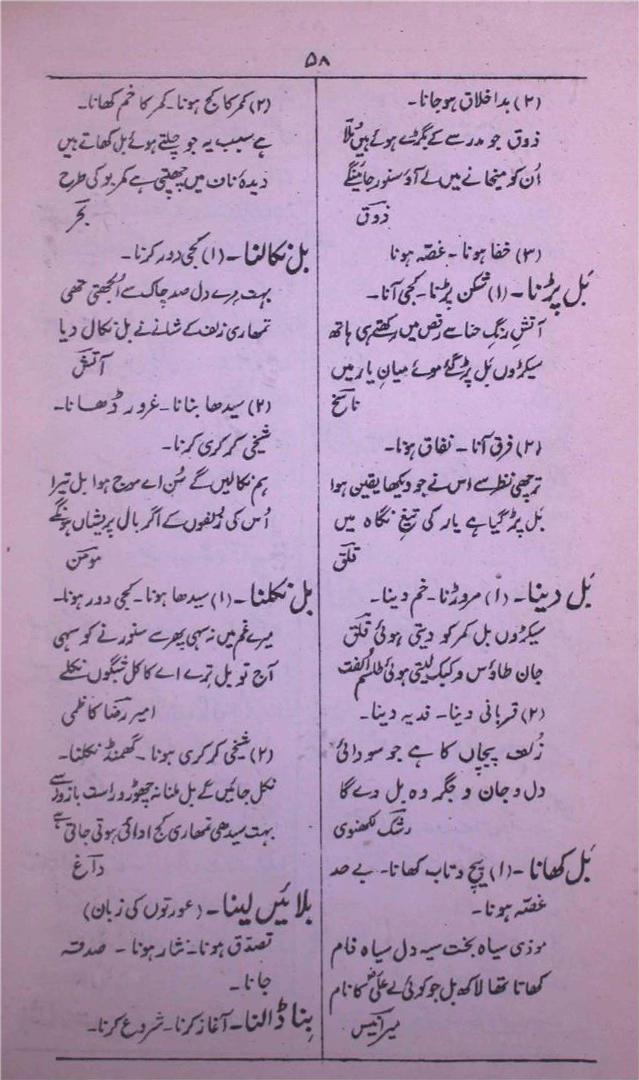 ۵۸
(۲) بداخلاق ہوجانا۔
ذوق جو مدرسے کے بگڑے ہوئے ہیں مُلّا
اُن کو میخانے میں لے آؤ سنور جائینگے
ذوق
(۳) خفا ہونا۔ غصّہ ہونا
بَل پڑنا۔ (۱) شکن پڑنا۔ کجی آنا۔
آتشِ رنگِ حنا سے رقص میں رکھتے ہی ہاتھ
سیکڑوں بَل پڑ گئے موئے میانِ یار میں
ناسخ
(۲) فرق آنا۔ نفاق ہونا۔
ترچھی نظر سے اس نے جو دیکھا یقین ہوا
بَل پڑ گیا ہے یار کی تیغِ نگاہ میں
قلق
بَل دینا۔ (۱) مروڑنا۔ خم دینا۔
سیکڑوں بل کمر کو دیتی ہوئی قلق
جان طاؤس و کبک لیتی ہوئی طلسم الفت
(۲) قربانی دینا۔ فدیہ دینا۔
زلف پیچاں کا ہے جو سودائی
دل و جان و جگر وہ بل دے گا
رشک لکھنوی
بَل کھانا۔ (۱) پیچ و تاب کھانا۔ بے حد
غصّہ ہونا۔
موذی سیاہ بخت سیہ دل سیاہ فام
کھاتا تھا لاکھ بل جو کوئی لے علیؑ کا نام
میر انیس
(۲) کمر کا کج ہونا۔ کمر کا خم کھانا۔
بے سبب یہ جو چلتے ہوئے بل کھاتے ہیں
دیدۂ ناف میں چھپتی ہے کمر بو کی طرح
بحر
بل نکالنا۔ (۱) کجی دور کرنا۔
بہت مرے دل صد چاک سے اُلجھتی تھی
تمھاری زلف کے شانے نے بل نکال دیا
آتش
(۲) سیدھا بنانا۔ غرور ڈھانا۔
شیخی کرکری کرنا۔
ہم نکالیں گے سُن اے موج ہوا بل تیرا
اُس کی زلفوں کے اگر بال پریشاں ہونگے
مومن
بل نکلنا۔ (۱) سیدھا ہونا۔ کجی دور ہونا۔
میرے غم میں نہ سہی پھر سے سنورنے کو سہی
آج تو بل ترے اے کاکل شبگوں نکلے
امیر رضا کاظمی
(۲) شیخی کرکری ہونا۔ گھمنڈ نکلنا۔
نکل جائیں گے بل ملنا نہ چھوڑو راست بازوں سے
بہت سیدھی تمھاری کج ادائی ہوتی جاتی ہے
داغ
بلائیں لینا۔ (عورتوں کی زبان)
تصدّق ہونا۔ نثار ہونا۔ صدقہ
جانا۔
بنا ڈالنا۔ آغاز کرنا۔ شروع کرنا۔